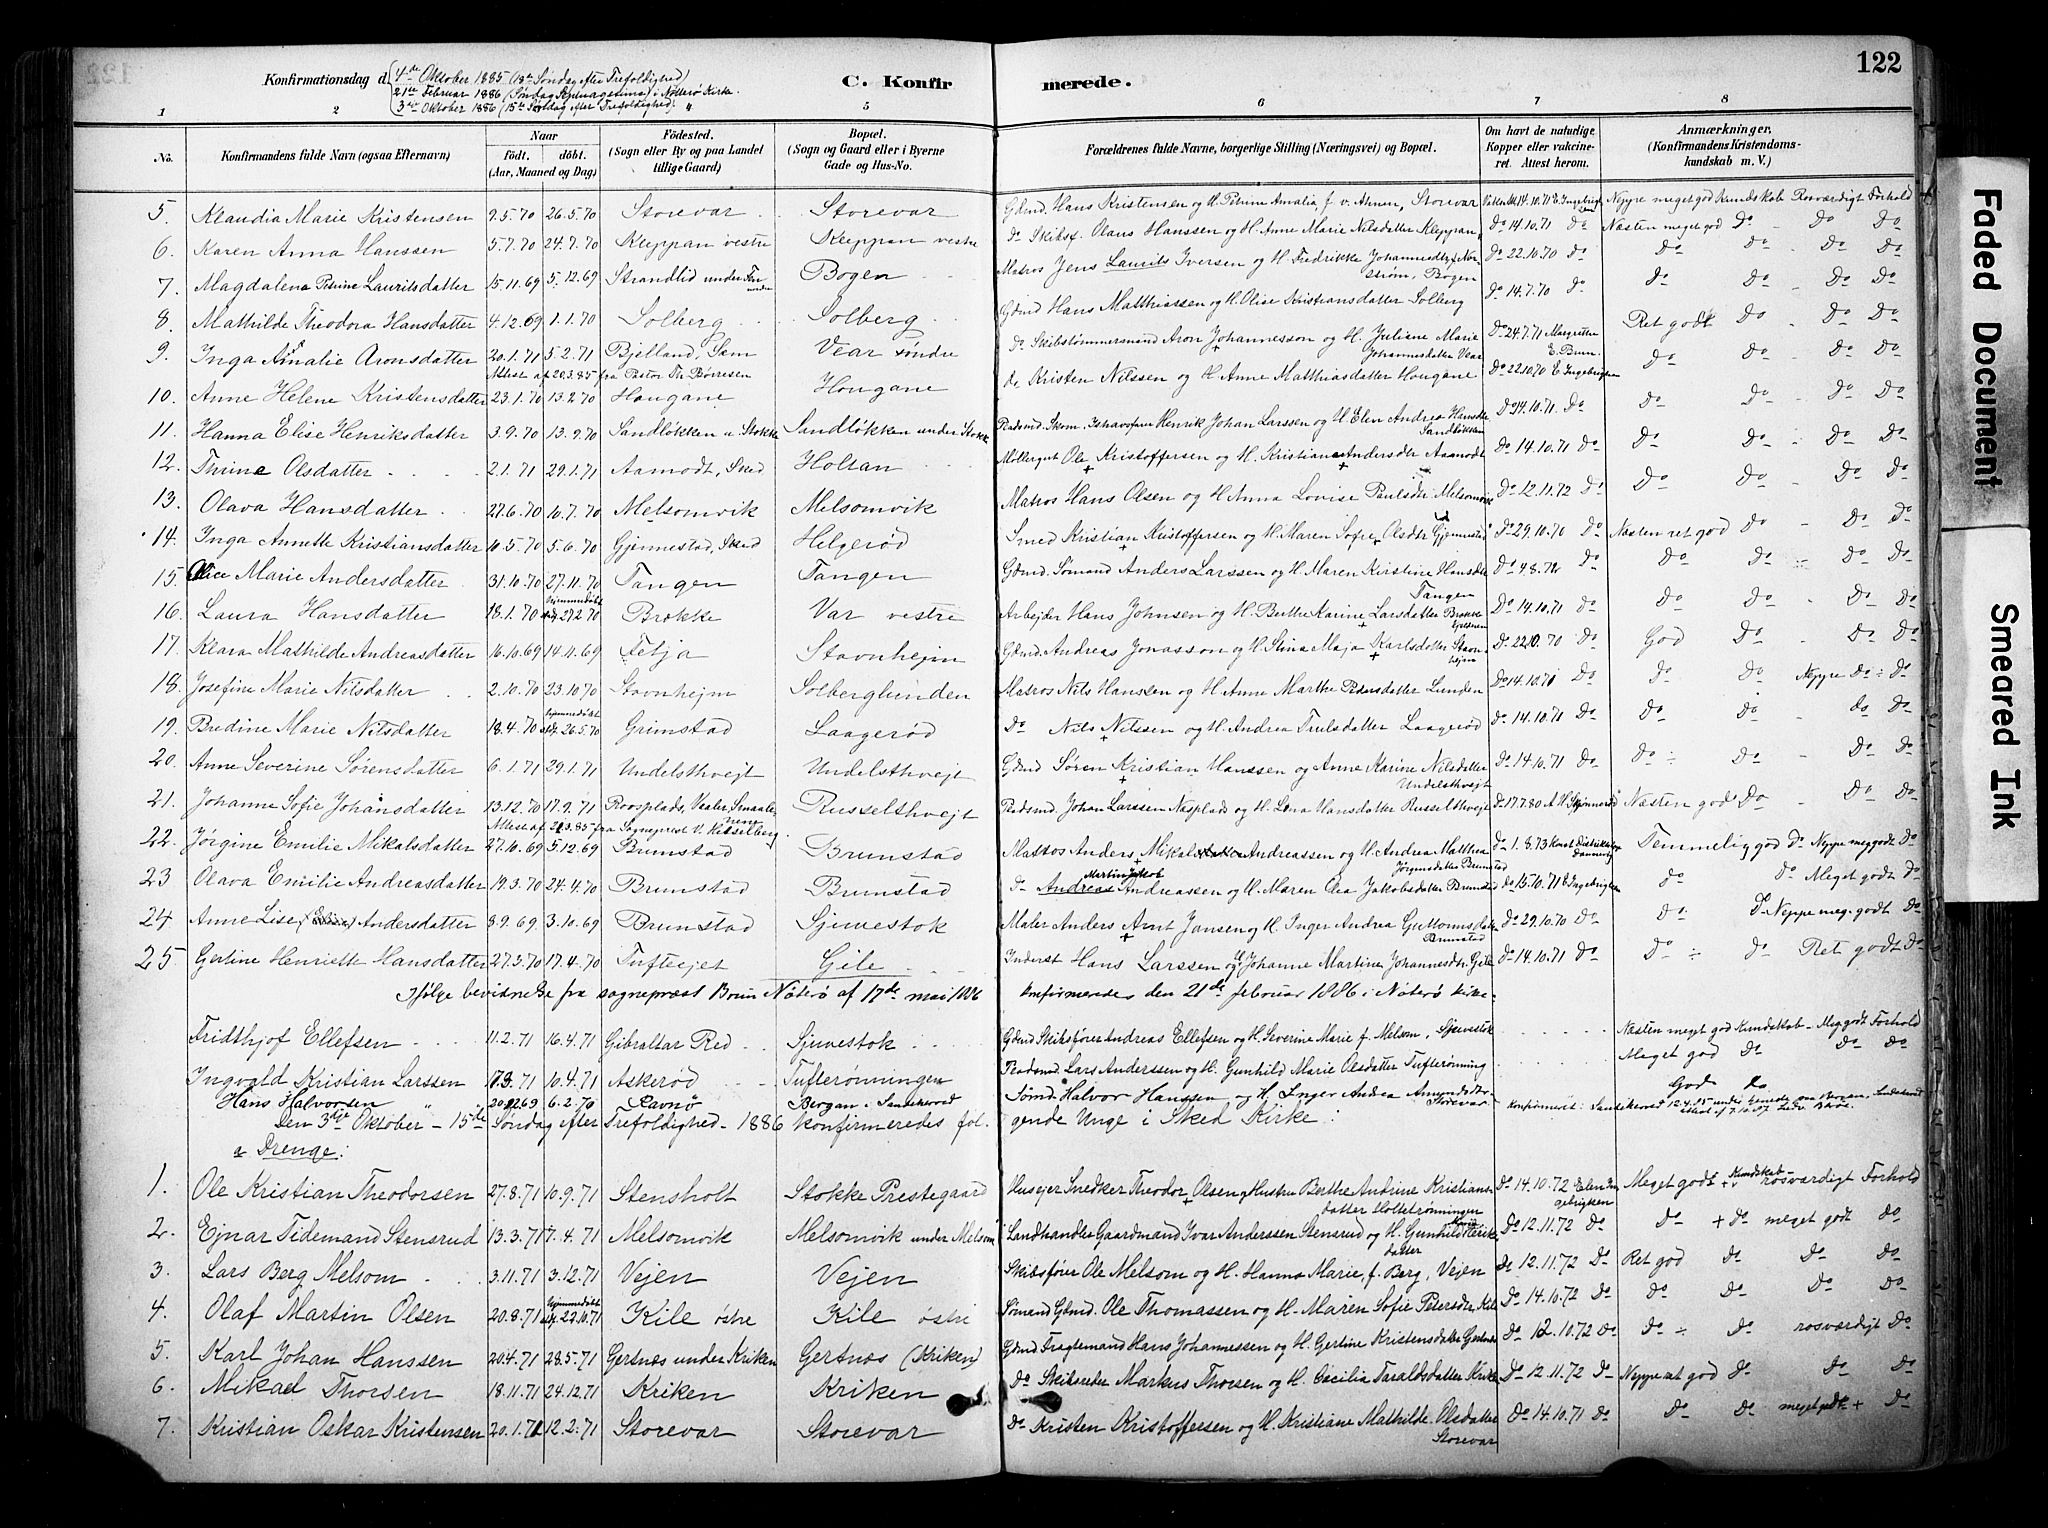 122
Konfirmationsdag d. 4de Oktober 1885 (18de Søndag efter Trefoldighed)
21de Februar 1886 (Søndag Septuagesima) i Nøtterø Kirke.
3die Oktober 1886 (15de Søndag efter Trefoldighed) "
C. Konfirmerede.
1 2 5 6 7 8
No. Konfirmandens fulde Navn (ogsaa Efternavn) Naar født. døbt. (Aar, Maaned og Dag) Födested. (Sogn eller By og paa Landet tillige Gaard) Bopæl. (Sogn og Gaard eller i Byerne Gade og Hus-No. Forældrenes fulde Navne, borgerlige Stilling (Næringsvei) og Bopæl. Om havt de naturlige Kopper eller vaccineret. Attest herom. Anmærkninger, (Konfirmandens Kristendomskundskab m. V.)
5. Klaudia Marie Kristensen 9.5.70 26.5.70 Storevar Storevar Gdmd. Hans Kristensen og H. Petrine Amalia, f. v. Ahnen, Storevar 14.10.71 Neppe meget god Kundskab Rosværdigt Forhold
6. Karen Anna Hanssen 5.7.70 24.7.70 Kleppan vestre Kleppan vestre Do Skibsf. Olaus Hanssen og H. Anne Marie Nilsdatter Kleppan Do 14.10.71 Do Næsten meget god Do Do Do
7. Magdalena Petrine Lauritsdatter 15.11.69 5.12.69 Strandlid under Bogen Matros Jens Laurits Iversen og H. Fredrikke Johannesdtr, f. Norstrøm, Bogen Do 22.10.70 Do Do Do Do Do
8. Mathilde Theodora Hansdatter 4.12.69 1.1.70 Solberg Solberg Gdmd Hans Matthiassen og H. Olise Kristiansdatter Solberg Do 14.7.70 Do Do Do Do Do
9. Inga Amalie Aronsdatter 20.1.71 5.2.71 Bjelland, Sem Vear søndre Do Skibstømmersmand Aron Johannesson og H. Juliane Marie Johannesdatter Vear Do 24.7.71 Margrethe E. Brun. Ret godt Do Do Do
Attest af 20.3.85 fra Pastor Th. Børresen
10. Anne Helene Kristensdatter 23.1.70 13.2.70 Hougane Hougane do Kristen Nilssen og H. Anne Matthiasdatter Hougane Do 22.10.70 E. Ingebrigtsen Do Do Do Do
11. Hanna Elise Henriksdatter 3.9.70 13.9.70 Sandløkken u. Stokke Sandløkken under Stokke Pladsmd. Skom. Henrik Johan Larssen og H. Elen Andrea Hansdtr Sandløkken Do 14.10.71 Do Do Do Do Do
12. Thrine Olsdatter 2.1.71 29.1.71 Aamodt, Sked Holtan Møllergut Ole Kristoffersen og H. Kristiane Andersdtr Aamodt Do 14.10.71 Do Do Do Do Do
13. Olava Hansdatter 27.6.70 10.7.70 Melsomvik Melsomvik Matros Hans Olsen og H. Anna Lovise Paulsdtr Melsomvik Do 12.11.72 Do Do Do Do Do
14. Inga Annette Kristiansdatter 10.5.70 5.6.70 Gjennestad, Sked Helgerød Smed Kristian Kristoffersen og H. Maren Sofie Olsdtr Gjennestad Do 29.10.70 Do Næsten ret god Do Do Do
15. Olise Marie Andersdatter 31.10.70 27.11.70 Tangen Tangen Gdmd. Sømand Anders Larssen og H. Maren Kirstine Hansdtr Tangen Do 4.8.72 Do Do Do Do Do
16. Laura Hansdatter 18.1.70 hjemmedøbt 27.2.70 Brække Var vestre Arbejder Hans Johnsen og H. Berthe Karine Larsdatter Brække Do 14.10.71 Do Do Do Do Do
17. Klara Mathilde Andreasdatter 16.10.69 14.11.69 Fetja Stavnhejm Gdmd. Andreas Jonasson og H. Stina Maja Karlsdatter Stavnhejm Do 22.10.70 Do God Do Do Do
18. Josefine Marie Nilsdatter 2.10.70 23.10.70 Stavnhejm Solberglunden Matros Nils Hanssen og H. Anne Marthe Pedersdatter Lunden Do 14.10.71 Do Do Do Neppe Do Do
19. Bredine Marie Nilsdatter 18.4.70 hjemmedøbt 26.5.70 Grimstad Laagerød Do Nils Nilssen og H. Andrea Trulsdatter Laagerød Do 14.10.71 Do Do Do do Do
20. Anne Severine Sørensdatter 6.1.71 29.1.71 Undelsthvejt Undelsthvejt Gdmd Søren Kristian Hanssen og Anne Karine Nilsdatter Undelsthvejt Do 14.10.71 Do Do Do Do Do
21. Johanne Sofie Johansdatter 13.12.70 17.9.71 Roosplads, Vaaler, Smaalenene Russelsthvejt Pladsmd. Johan Larssen Næsplads og H. Lena Hansdatter Russelsthvejt Do 17.7.80 Næsten god Do Do Do
Attest af 21.3.85 fra Sogneprest V. Hesselberg.
22. Jørgine Emilie Mikalsdatter 27.10.69 5.12.69 Brunstad Brunstad Matros Anders Mikal Andreassen og H. Andrea Matthea Jørgensdatter Brunstad Do 1.8.73 Temmelig god Do Neppe meg. godt Do
23 Olava Emilie Andreasdatter 19.3.70 24.4.70 Brunstad Brunstad Do Andreas Martin Jakob Andreassen og H. Maren Elea Jakobsdatter Brunstad Do 15.10.71 E. Ingebrigtsen Do Do Meget godt Do
24 Anne Lise (Elise) Andersdatter 8.9.69 3.10.69 Brunstad Sjuestok Maler Anders Arnt Jansen og H. Inger Andrea Guttormsdatter Brunstad Do 29.10.70 Do Do Do Neppe meg. godt Do
25 Gertine Henriette Hansdatter 27.3.70 17.4.70 Tuftvejet Gile Inderst Hans Larssen og H. Johanne Martine Johannesdtr. Gile Do 14.10.71 Do Do Do Ret godt Do
Ifølge bevidnelse fra sogneprest Brun Nøterø af 17de mai 1886 konfirmeredes den 21de februar 1886 i Nøterø kirke.
Fridthjof Ellefsen 11.2.71 16.4.71 Gibraltar Red Sjuestok Gdmd Skibsfører Andreas Ellefsen og H. Severine Marie f. Melsom, Sjuestok Næsten meget god Kundskab Meg. godt Forhold
Ingvald Kristian Larssen 17.3.71 10.4.71 Askerød Tufterønningen Pladsmd. Lars Anderssen og H. Gunhild Marie Olsdatter Tufterønning Meget god Do Do Do
Hans Halvorsen 20.12.69 6.2.70 Ravnø Bergan i Sandeherred Sømd. Halvor Hanssen og H. Inger Andrea Amundsdtr Storevar God do Konfirmeret i Sandeherred 12.4.85
Den 3die Oktober - 15de Søndag efter Trefoldighed - 1886 konfirmeredes følgende Unge i Sked Kirke:
a Drenge:
1. Ole Kristian Theodorsen 27.8.71 10.9.71 Stensholt Stokke Prestegaard Husejer Snedker Theodor Olsen og Hustru Berthe Andrine Kristiansdatter Holtetrønningen Do 14.10.72 Elen Ingebrigtsen Meget godt Kundskab rosværdigt Forhold
2. Ejnar Tidemand Stensrud 13.3.71 7.4.71 Melsomvik Melsomvik under Melsom Landhandler Gaardmand Ivar Anderssen Stensrud og H. Gunhild Marie Eriksdatter Do 12.11.72 Do Do + Do meget godt Do
3. Lars Berg Melsom 3.11.71 3.12.71 Vejen Vejen Skibsfører Ole Melsom og H. Hanna Marie, f. Berg, Vejen Do 12.11.72 Do Ret god Do Do Do
4. Olaf Martin Olsen 20.8.71 hjemmedøbt 22.10.71 Kile østre Kile østre Sømand Gdmd. Ole Thomassen og H. Maren Sofie Petersdtr Kile Do 14.10.72 Do Do Do Do Do
5. Karl Johan Hanssen 20.4.71 28.5.71 Gertnæs under Kriken Gertnæs (Kriken) Gdmd Fragtemand Hans Johannessen og H. Gertine Kristensdatter Gertnæs Do 12.10.72 Do Do Do rosværdigt Do
6. Mikael Thorsen 18.11.71 24.12.71 Kriken Kriken Do Skibsreder Markus Thorsen og H. Cecilia Taraldsdatter Kriken Do 12.11.72 Do Neppe ret god Do Do Do
7. Kristian Oskar Kristensen 20.1.71 12.2.71 Storevar Storevar Do Kristen Kristoffersen og H. Kristiane Mathilde Olsdatter Storevar Do 14.10.71 Do Do Do meget godt + Do
Faded Document
Smeared Ink